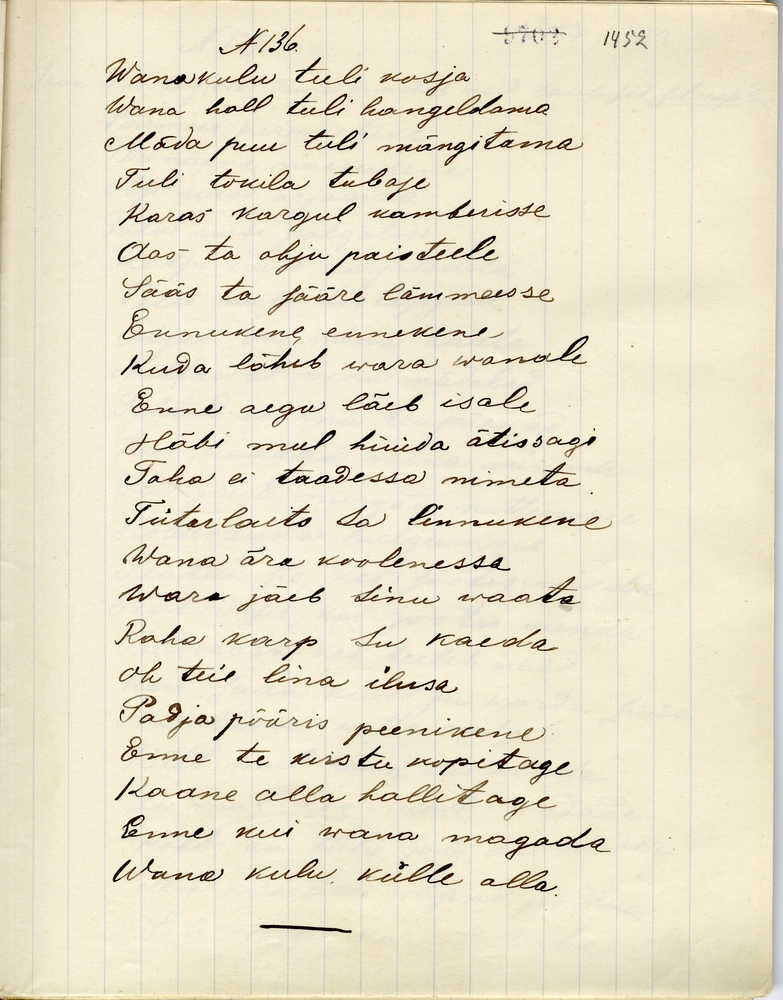 N 136.
1452
Wana kulu tuli kosja
Wana hall tuli hangeldama
Mäda puu tuli mängitama
Tuli tokila tubaje
Karas kargul kamberisse
Aas ta ahju paisteele
Sääs ta jääre lämmeesse
Ennukene, ennekene,
Kuda läheb wara wanale
Enne aegu läeb isale
Häbi mul hüüda ätissagi
Taha ei taadessa nimeta
Tütarlaits sa linnukene
Wana ära koolenessa
Wara jäeb sinu waata
Raha karp su kaeda
Oh teie lina ilusa
Padja pööris peenikene
Enne te kirstu kopitage
Kaane alla hallitage
Enne kui wana magada
Wana kulu külle alla.